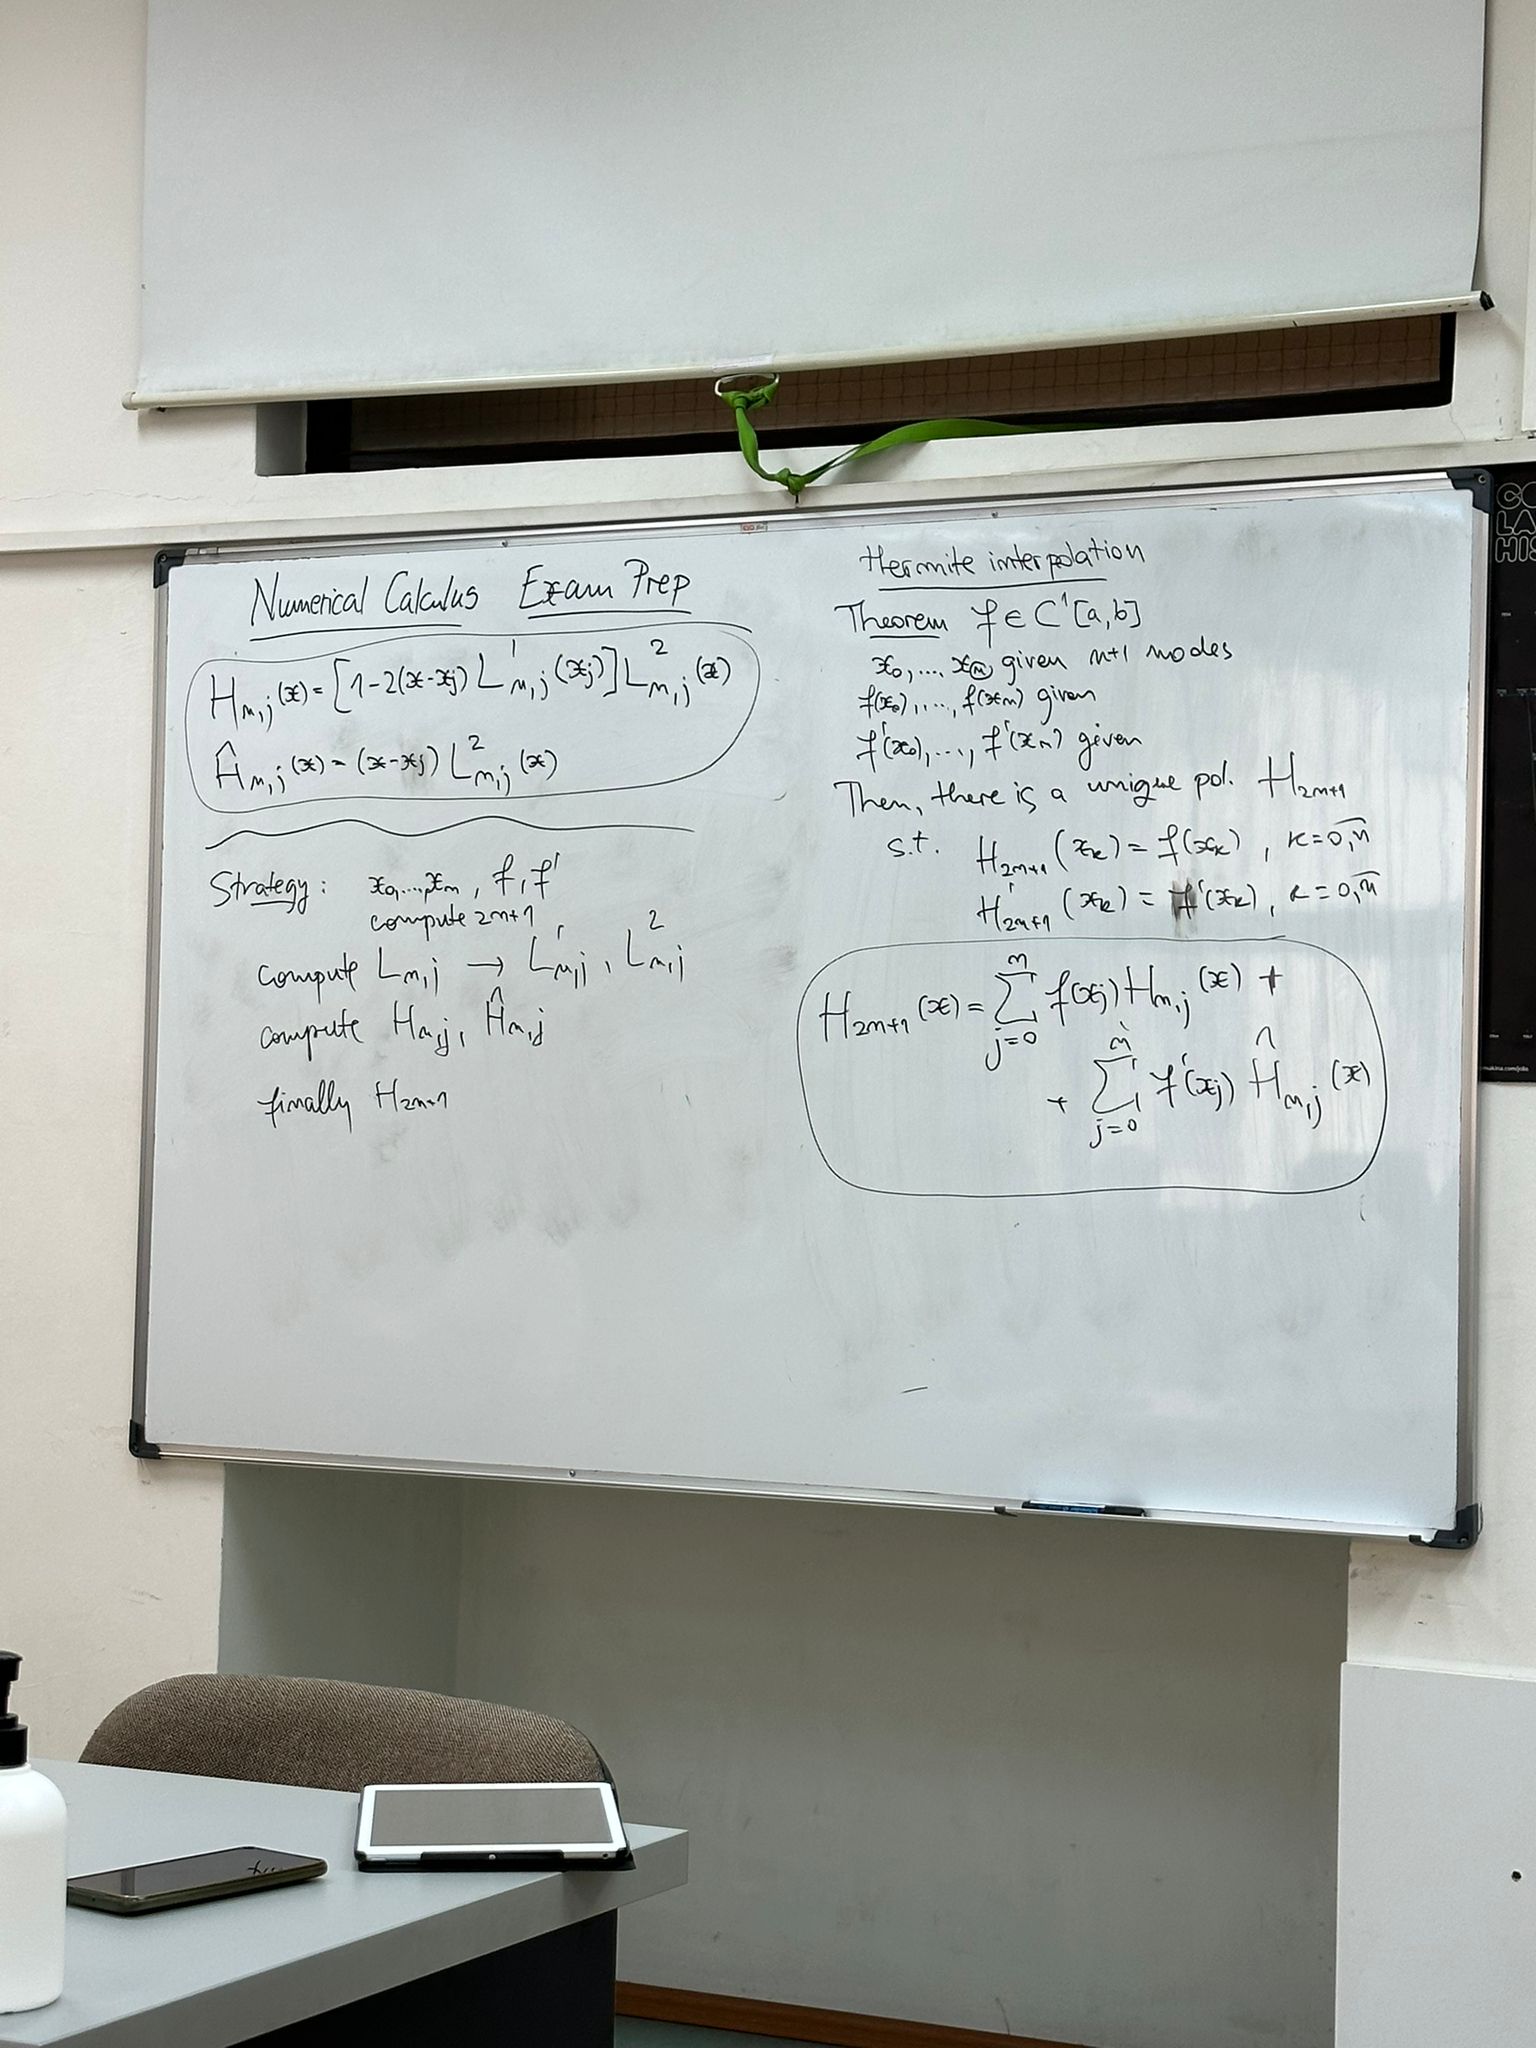 Numerical Calculus Exam Prep
H_{n,j}(x) = [1-2(x-x_j) L'_{n,j}(x_j)] L²_{n,j}(x)
Ĥ_{n,j}(x) = (x-x_j) L²_{n,j}(x)
Strategy: x_0,...,x_n, f, f'
compute 2n+1
compute L_{n,j} → L'_{n,j}, L²_{n,j}
compute H_{n,j}, Ĥ_{n,j}
finally H_{2n+1}
Hermite interpolation
Theorem f ∈ C'[a,b]
x_0,...,x_n given n+1 nodes
f(x_0),...,f(x_n) given
f'(x_0),..., f'(x_n) given
Then, there is a unique pol. H_{2n+1}
s.t. H_{2n+1}(x_k) = f(x_k), k=0,n̅
H'_{2n+1}(x_k) = f'(x_k), k=0,n̅
H_{2n+1}(x) = ∑_{j=0}^{n} f(x_j) H_{n,j}(x) +
+ ∑_{j=0}^{n} f'(x_j) Ĥ_{n,j}(x)
CO
LA
HIS